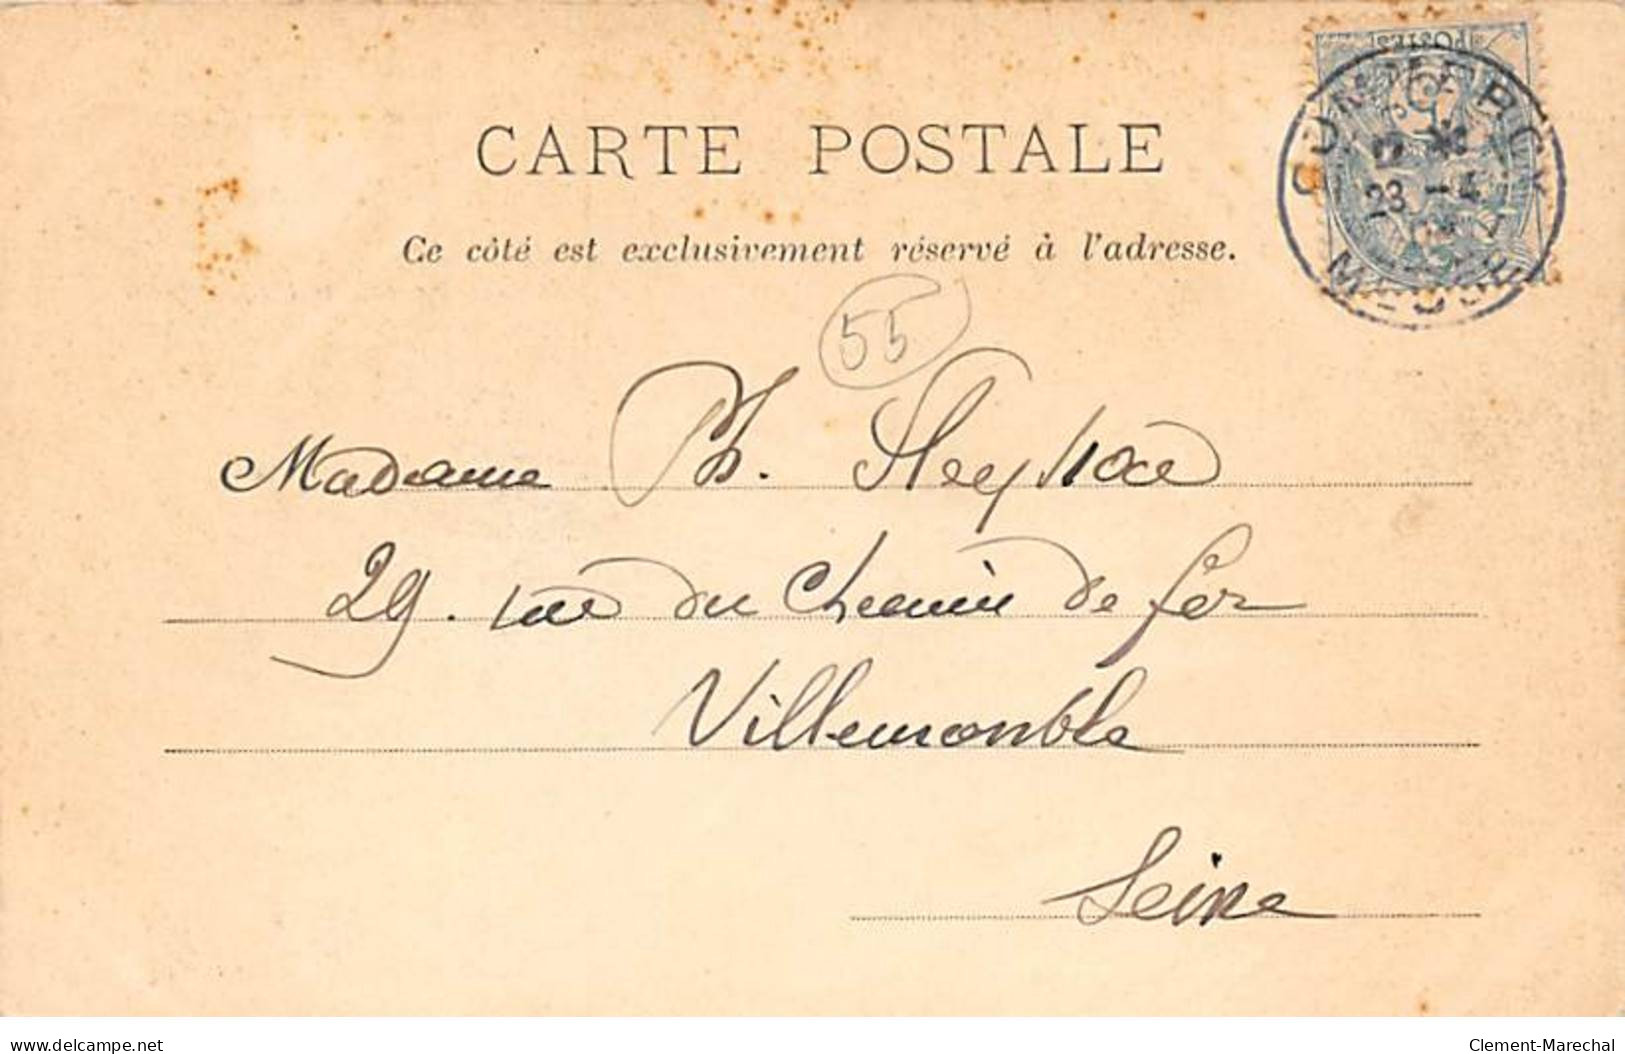 CARTE POSTALE
Ce côté est exclusivement réservé à l'adresse.
POSTES
MEUSE
23 - 4
55
Madame Ph.
29. rue du Chemin de fer
Villemomble
Seine
delcampe.net
Clement-Marechal